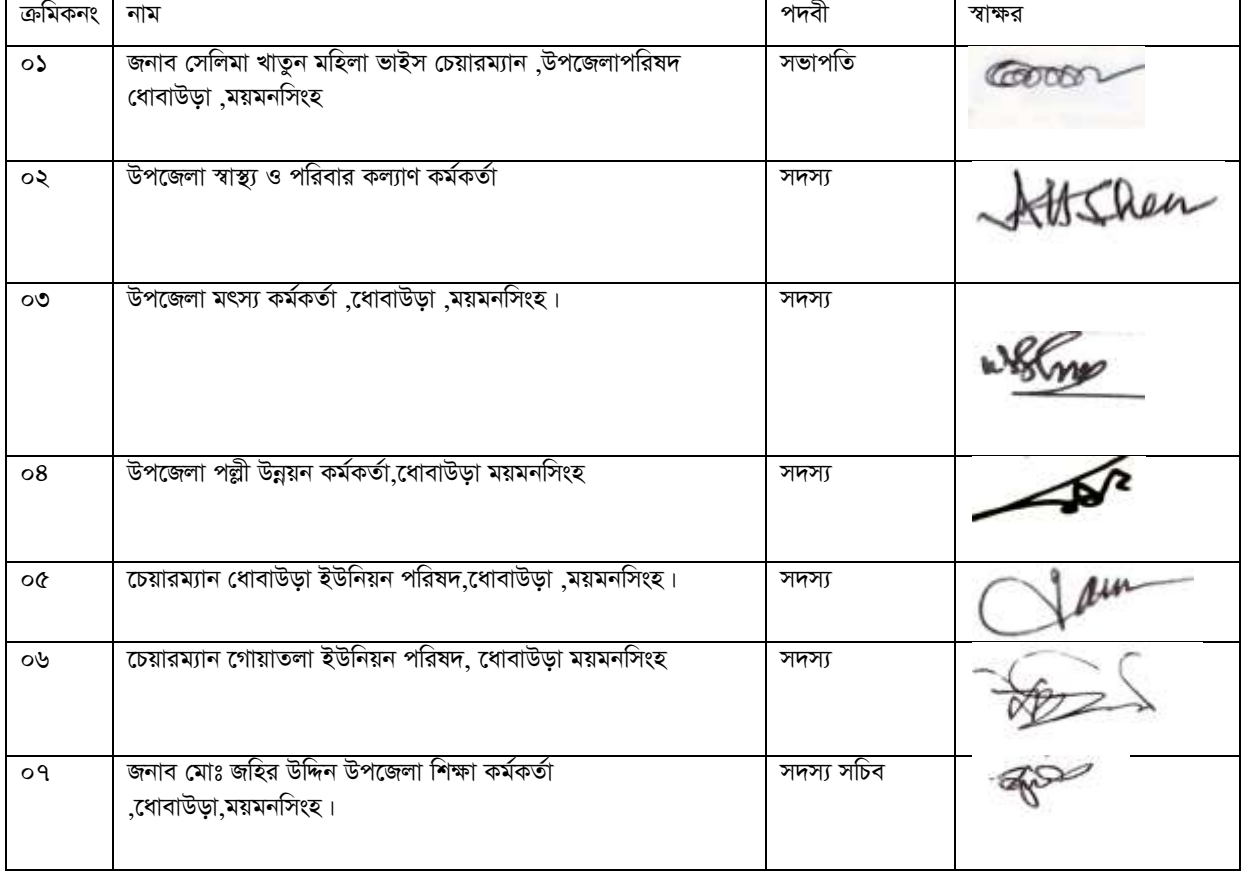 ক্রমিকনং নাম পদবী স্বাক্ষর
০১ জনাব সেলিমা খাতুন মহিলা ভাইস চেয়ারম্যান ,উপজেলাপরিষদ সভাপতি
ধোবাউড়া ,ময়মনসিংহ
০২ উপজেলা স্বাস্থ্য ও পরিবার কল্যাণ কর্মকর্তা সদস্য
০৩ উপজেলা মৎস্য কর্মকর্তা ,ধোবাউড়া ,ময়মনসিংহ। সদস্য
০৪ উপজেলা পল্লী উন্নয়ন কর্মকর্তা,ধোবাউড়া ময়মনসিংহ সদস্য
০৫ চেয়ারম্যান ধোবাউড়া ইউনিয়ন পরিষদ,ধোবাউড়া ,ময়মনসিংহ। সদস্য
০৬ চেয়ারম্যান গোয়াতলা ইউনিয়ন পরিষদ, ধোবাউড়া ময়মনসিংহ সদস্য
০৭ জনাব মোঃ জহির উদ্দিন উপজেলা শিক্ষা কর্মকর্তা সদস্য সচিব
,ধোবাউড়া,ময়মনসিংহ।